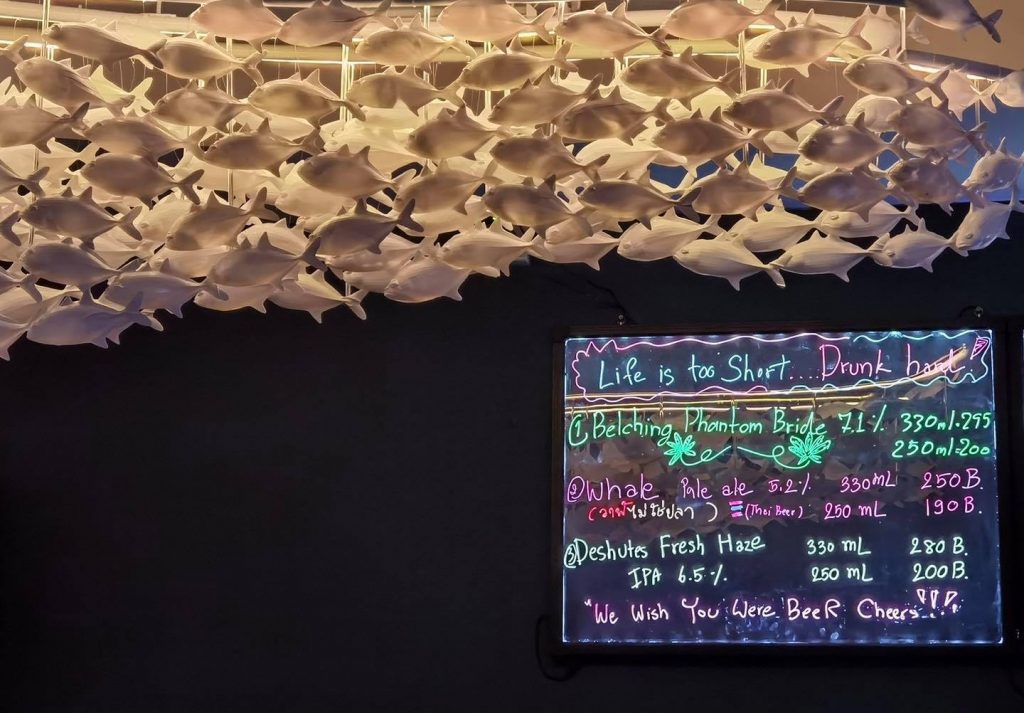 Life is too Short.... Drunk hard!
① Belching Phantom Bride 7.1% 330ml=295
250ml=200
② Whale Pale ale 5.2% 330mL 250 B.
(วาฬไม่ใช่ปลา) (Thai Beer) 250 mL 190 B.
③ Deshutes Fresh Haze 330 mL 280 B.
IPA 6.5% 250 mL 200B.
"We Wish You Were BeeR Cheers!!!"